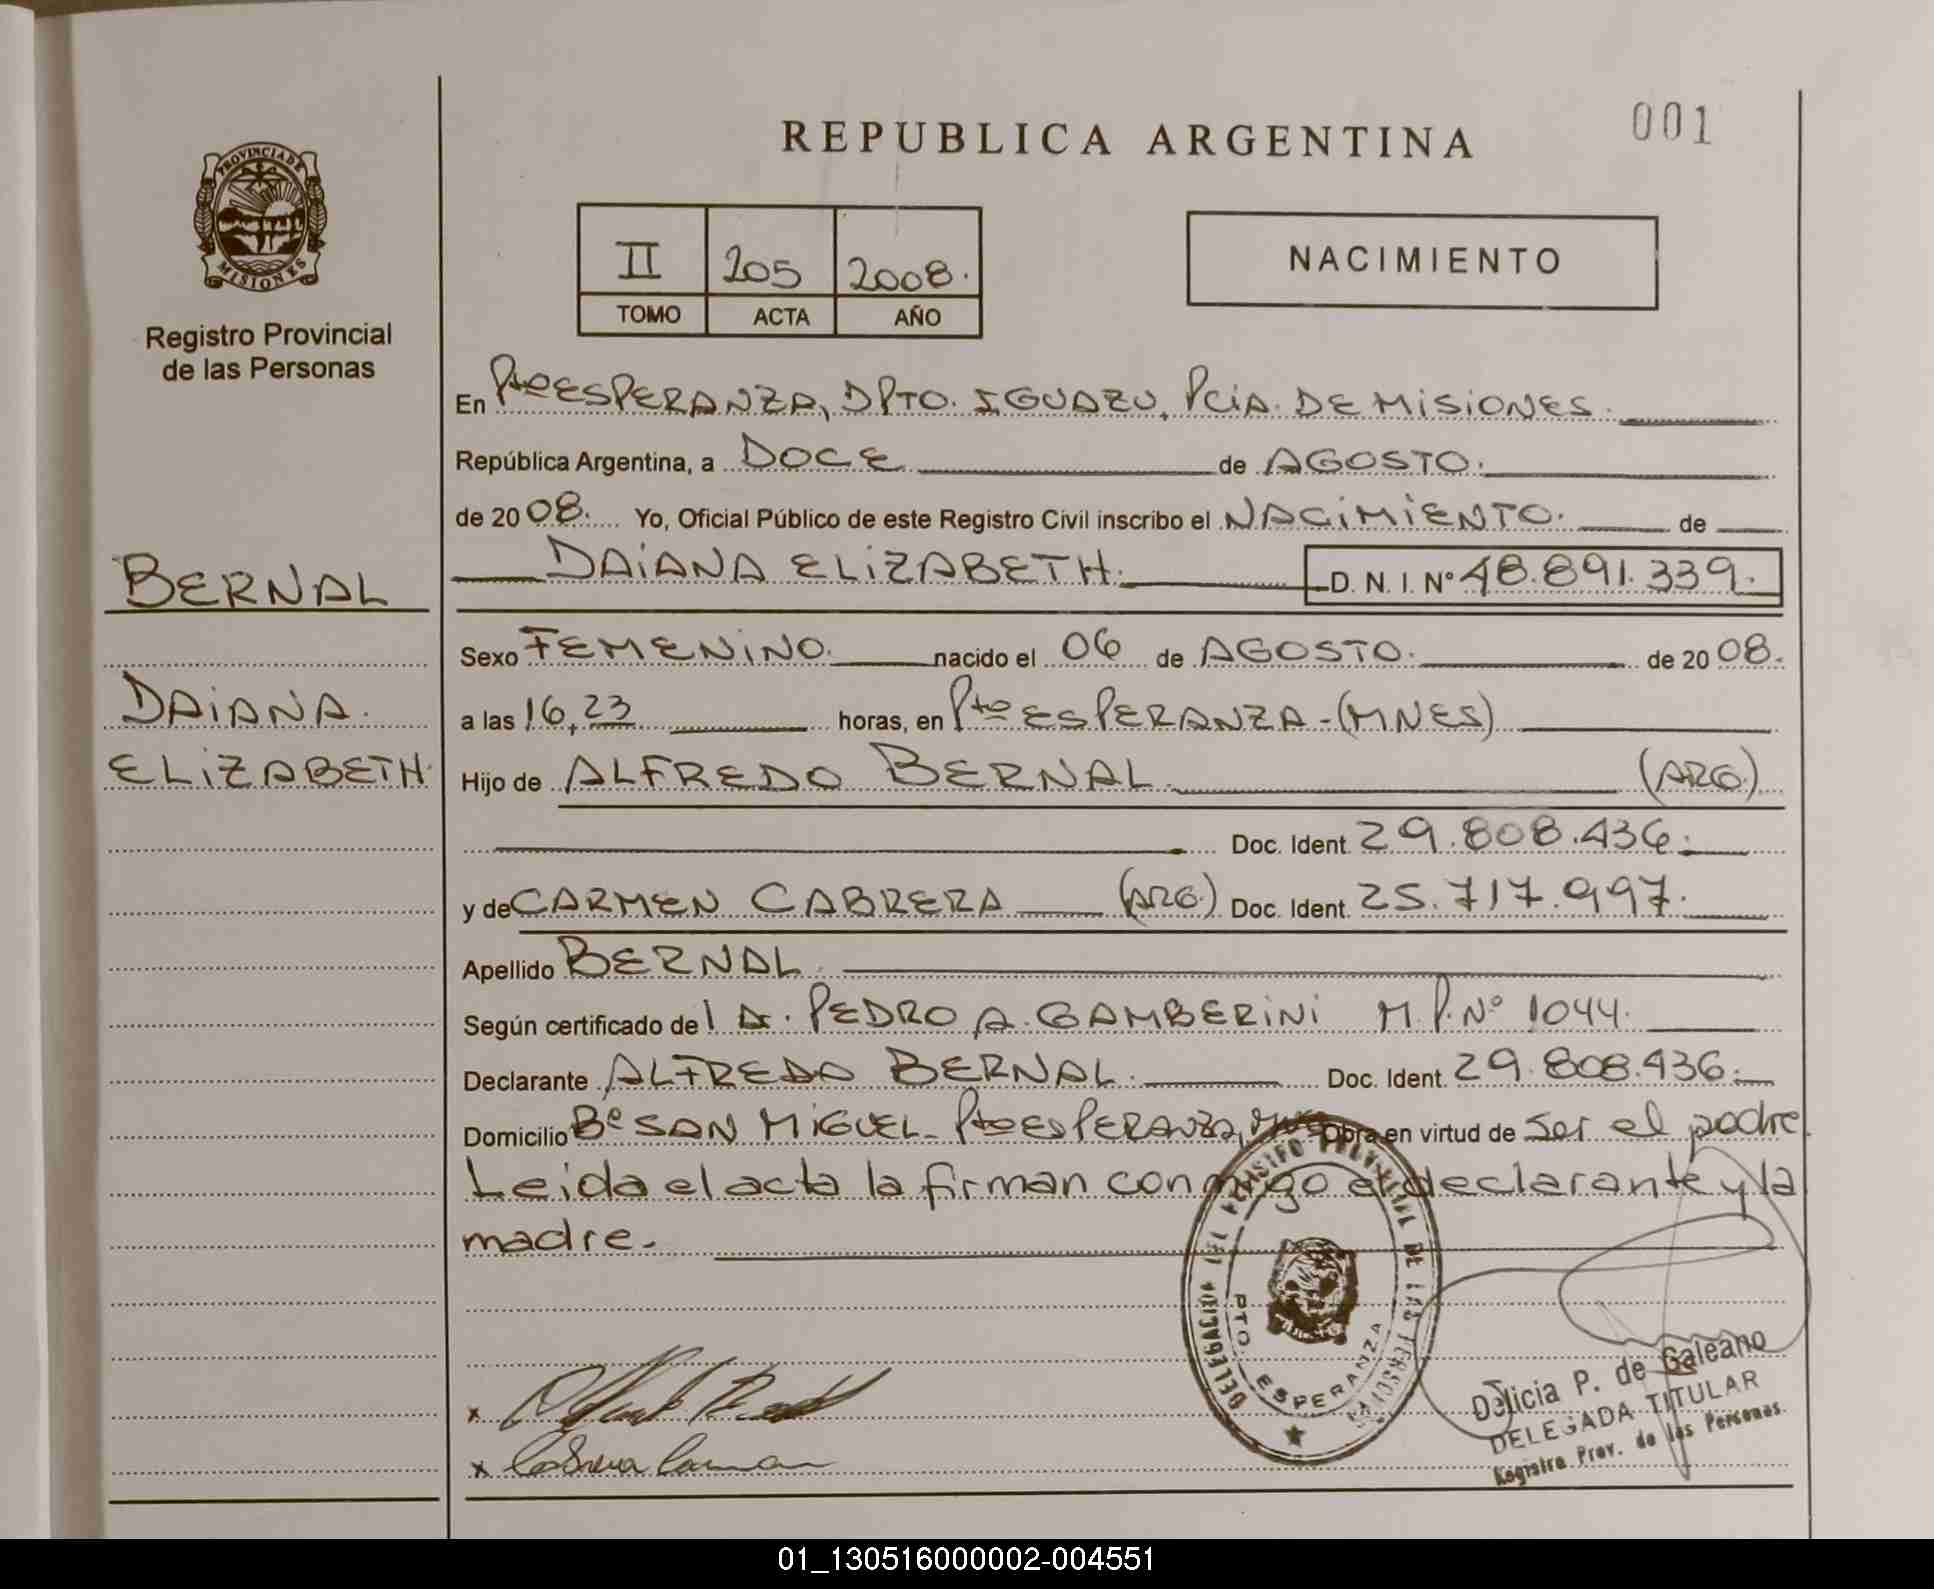 REPUBLICA ARGENTINA
001
PROVINCIA DE
MISIONES
Registro Provincial
de las Personas
II 205 2008.
TOMO ACTA AÑO
NACIMIENTO
En Pto ESPERANZA, DPTO. IGUAZU, PCIA. DE MISIONES.
República Argentina, a DOCE de AGOSTO.
de 2008. Yo, Oficial Público de este Registro Civil inscribo el NACIMIENTO. de
DAIANA ELIZABETH. D. N. I. Nº 48.891.339.
BERNAL
DAIANA.
ELIZABETH.
Sexo FEMENINO. nacido el 06 de AGOSTO. de 2008.
a las 16,23 horas, en Pto ESPERANZA-(MNES)
Hijo de ALFREDO BERNAL. (ARG.)
Doc. Ident. 29.808.436.
y de CARMEN CABRERA (ARG.) Doc. Ident. 25.717.997.
Apellido BERNAL.
Según certificado del Dr. PEDRO A. GAMBERINI M.P. Nº 1044.
Declarante ALFREDO BERNAL. Doc. Ident. 29.808.436.
Domicilio Bº SAN MIGUEL- Pto ESPERANZA, Obra en virtud de ser el padre.
Leida el acta la firman conmigo el declarante y la
madre.-
DELEGACION DEL REGISTRO PROVINCIAL DE LAS PERSONAS
PTO ESPERANZA
x
x Cabrera Carmen
Delicia P. de Galeano
DELEGADA TITULAR
Registro Prov. de las Personas
01_130516000002-004551